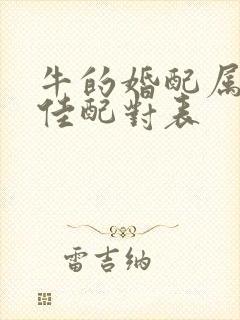 牛的婚配属
佳配對表
雷吉纳